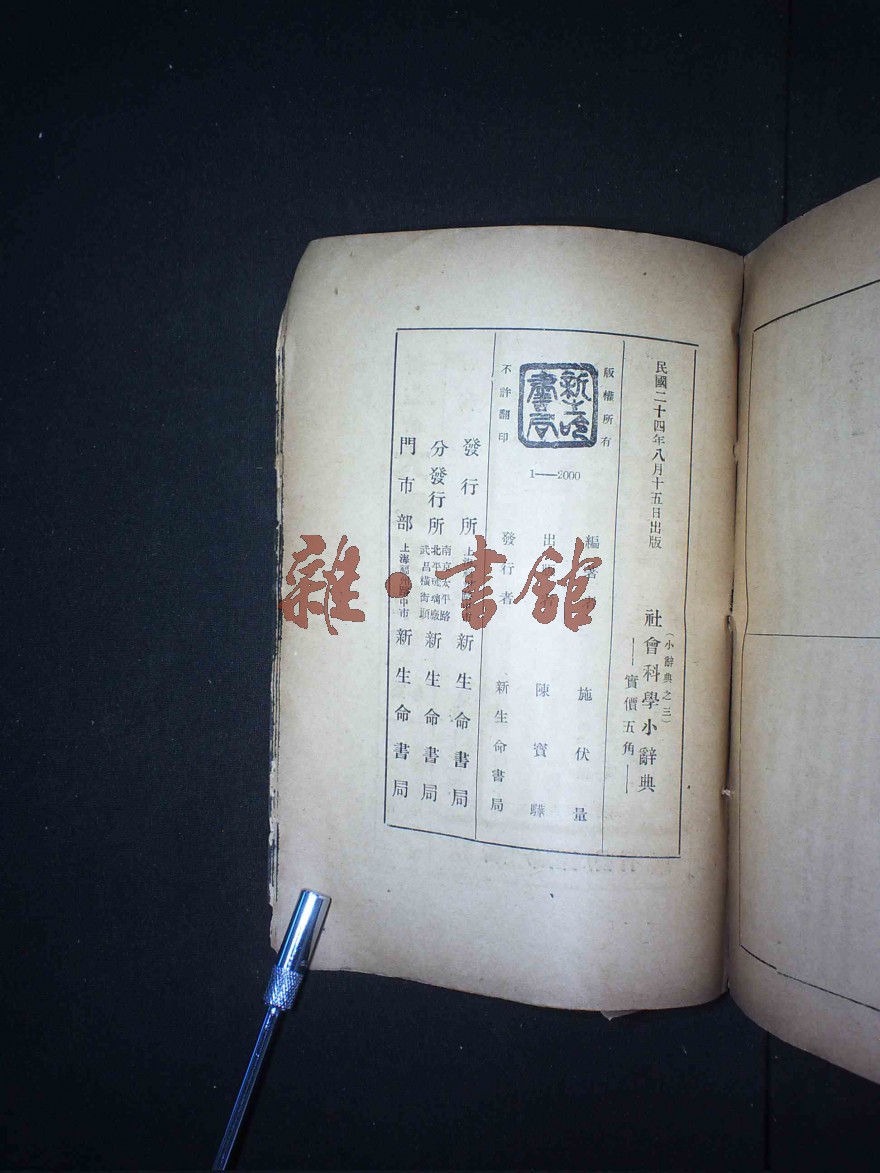 民國二十四年八月十五日出版
(小辭典之三)
社會科學小辭典
——實價五角——
版權所有
新生命書局
不許翻印
1——2000
編著者 施伏量
出版者 陳寶驊
發行者 新生命書局
發行所 上海 新生命書局
分發行所 南京太平路 北平琉璃廠 武昌橫街頭 新生命書局
門市部 上海福州路中市 新生命書局
雜·書館